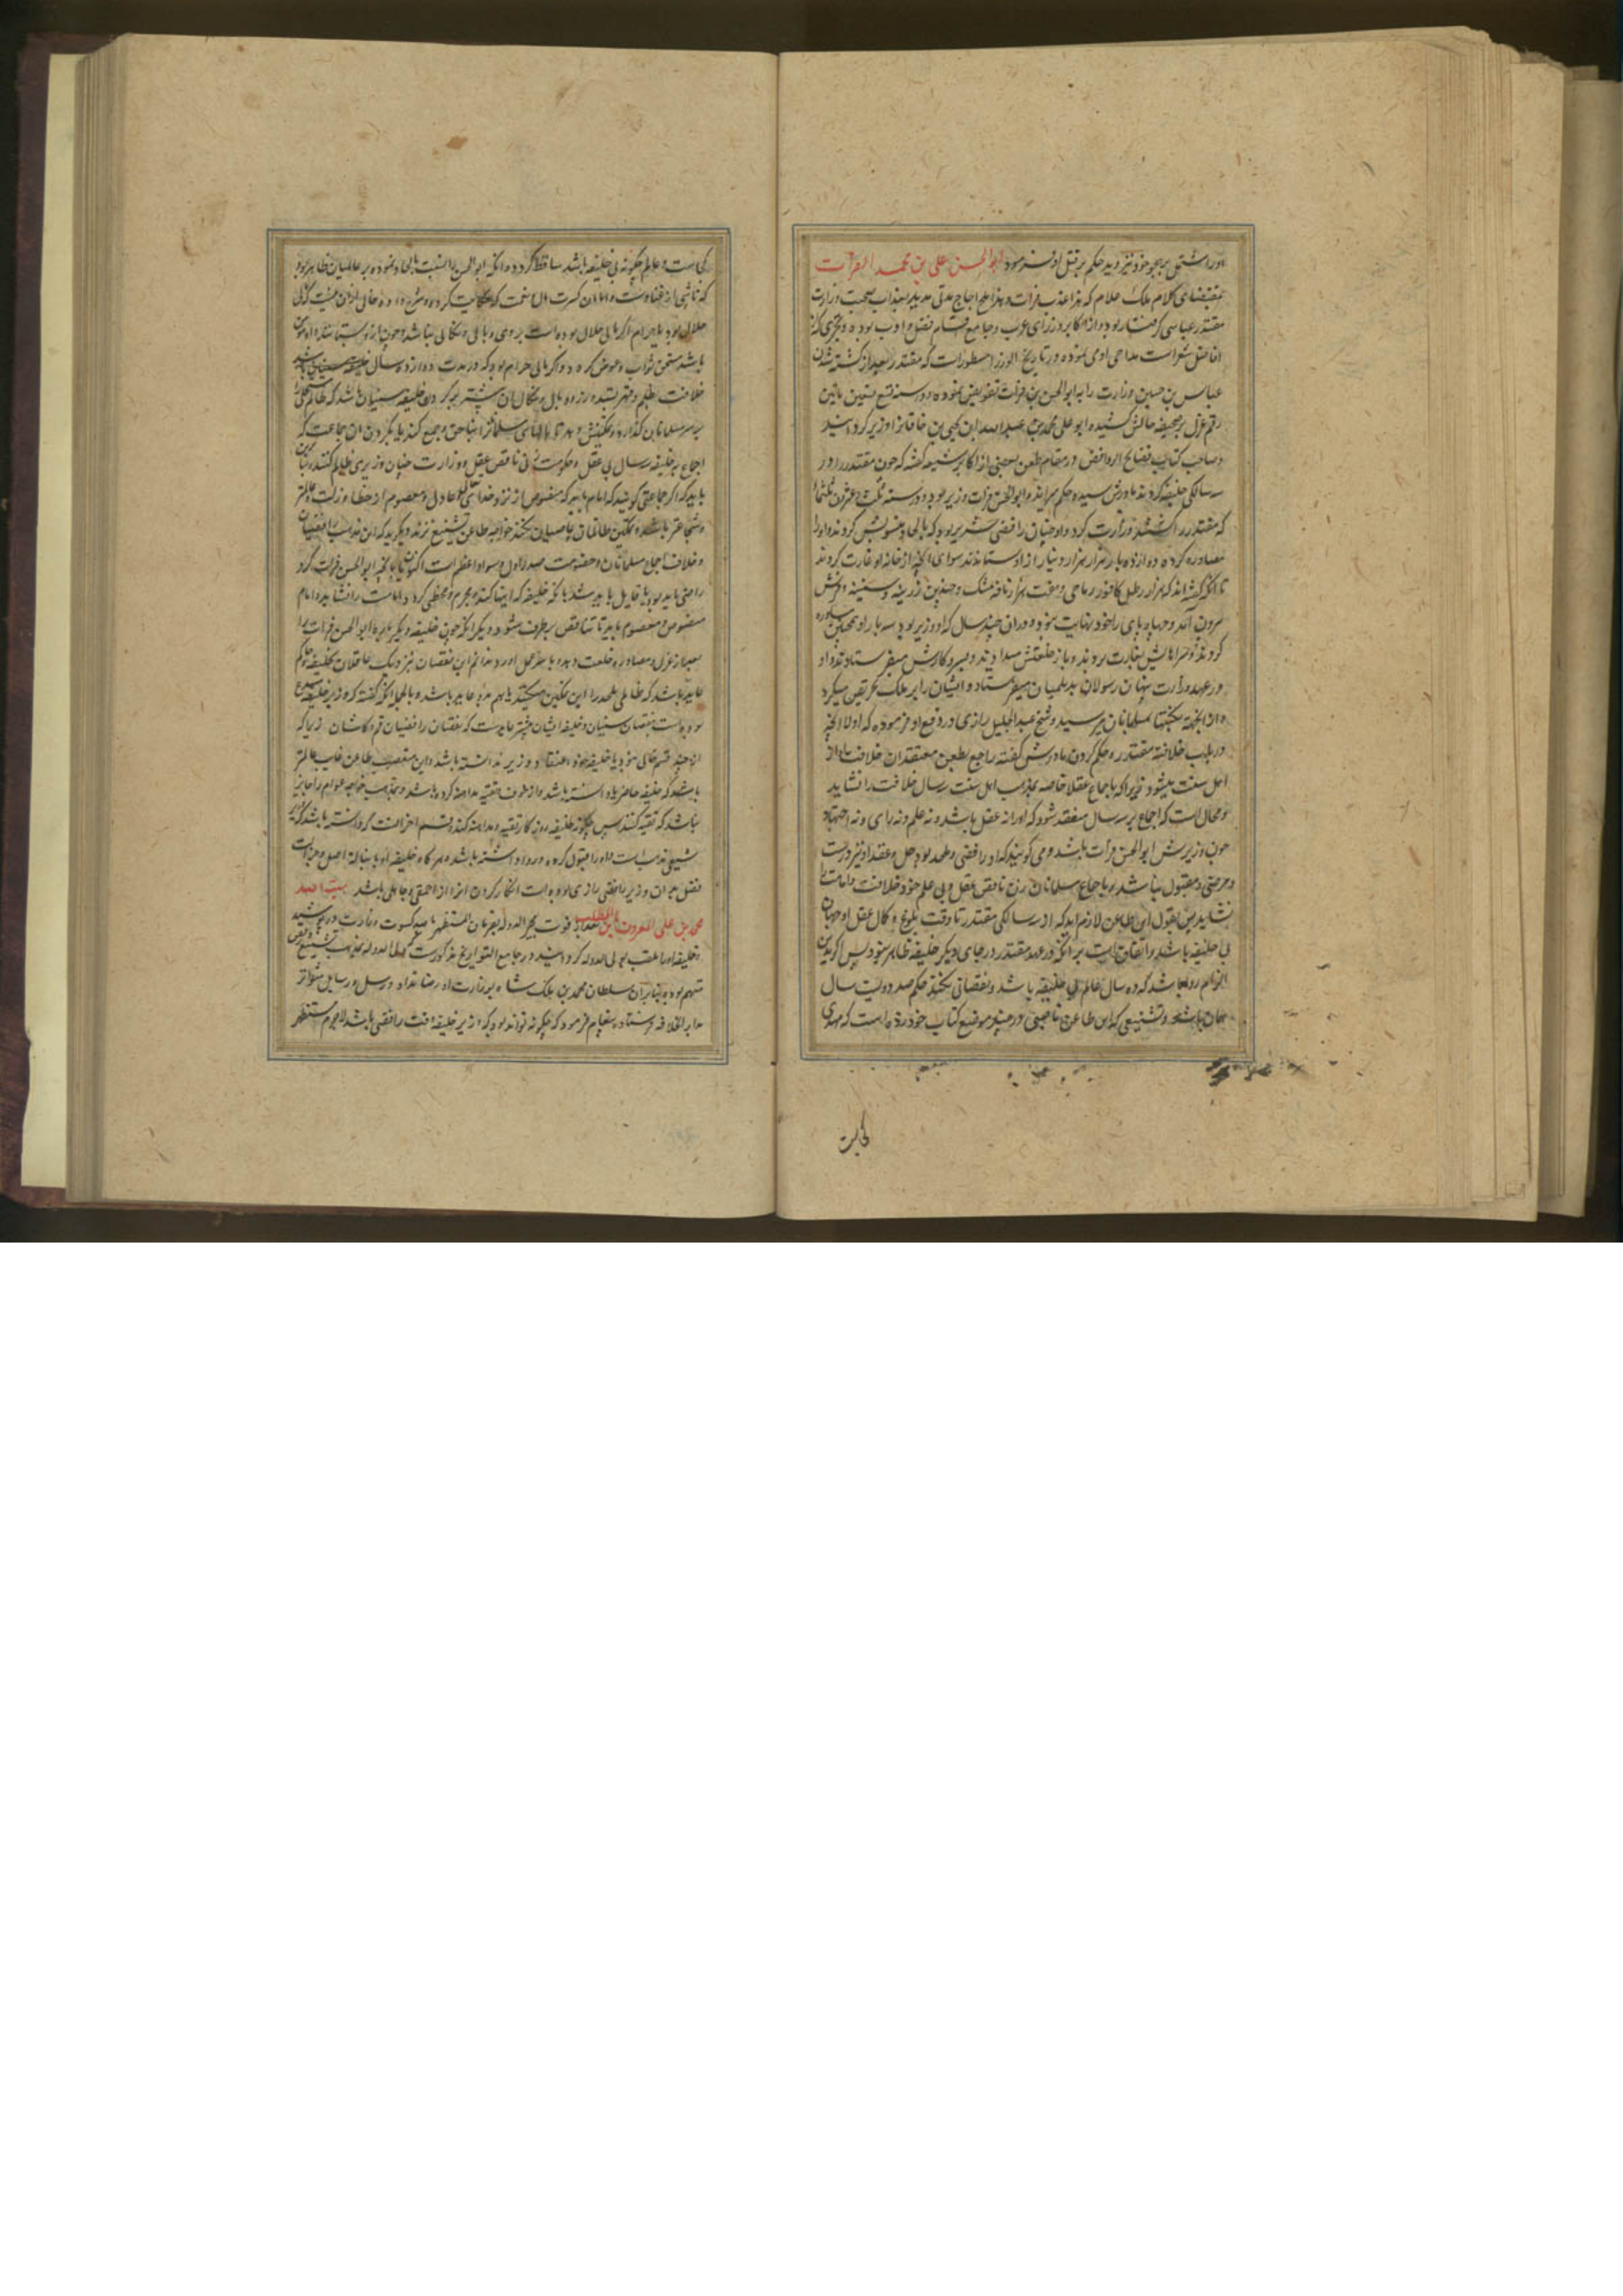 اورا مشتمل بر هجو خود نیز دید حکم بر قتل او فرمود ابو الحسن علی بن محمد الفرات
بمقتضای کلام ملک علام که هذا عذب فرات و هذا ملح اجاج مدتی مدید بعذاب صحبت وزارت
مقتدر عباسی گرفتار بود و از اکابر وزرای عرب و جامع اقسام فضل و ادب بوده و بحتری که از
افاضل شعراست مداحی او می نموده در تاریخ الوزرا مسطورست که مقتدر بعد از کشته شدن
عباس بن حسین وزارت را به ابو الحسن بن فرات تفویض نموده و در سنه تسع و تسعین ماتین
رقم عزل بر صحیفه حالش کشیده ابو علی محمد بن عبید الله ابن یحیی بن خاقان را وزیر گردانید
و صاحب کتاب فضایح الروافض در مقام طعن بعضی از اکابر شیعه گفته که چون مقتدر را در
سه سالگی خلیفه کردند مادرش سیده حکم میراند و ابو الحسن فرات وزیر بود
که مقتدر را وزارت کرد و او چنان رافضی شریر بود که بالحاد منسوبش کردند و او را
مصادره کرده دوازده بار هزار هزار دینار از او ستاندند سوای آنچه از خانه او غارت کردند
تا آنکه گفته اند که هزار رطل کافور رباحی و هفت هزار نافه مشک و چندین زرینه و سیمینه و فرش
بیرون آمد و چهارپای را خود نهایت نبوده و در آن چند سال که او وزیر بود سه بار او را همچنین مصادره
کردند و سراهایش بغارت بردند و باز خلعتش میدادند و بسر کارش میفرستادند و او
در عهد وزارت پنهان رسولان بدیلمیان میفرستاد و ایشان را بر ملک تحریض میکرد
و از آنجهة نکبتها بمسلمانان میرسید و شیخ عبد الجلیل رازی در دفع او فرموده که اولا آنچه
در باب خلافت مقتدر و حکم کردن مادرش گفته راجع بطعن معتقدان خلافت او از
اهل سنت میشود زیرا که باجماع عقلا خاصه بمذهب اهل سنت سه ساله خلافت را نشاید
و محال است که اجماع بر سه ساله منعقد شود که او را نه عقل باشد و نه علم و نه رای و نه اجتهاد
چون وزیرش ابو الحسن فرات باشد و می گویند که او رافضی و ملحد بود حل و عقد او نیز درست
و مرضی و مقبول نباشد و باجماع مسلمانان زن ناقص عقل و بی علم خود خلافت و امامت را
نشاید پس بقول این طاعن لازم آید که از سه سالگی مقتدر تا وقت بلوغ و کمال عقل او جهان
بی خلیفه باشد و اتفاق است بر آنکه در عهد مقتدر در جای دیگر خلیفه ظاهر نبود پس اگر بدین
الزام روا باشد که ده سال عالم بی خلیفه باشد و نقصانی نکند حکم صد و دویست سال
همان باشد و تشنیعی که این طاعن ناصبی در چند موضع کتاب خود زده است که مهدی
کجاست
کجاست و عالم چگونه بی خلیفه باشد ساقط گردد و آنکه ابو الحسن را نسبت بالحاد نموده بر عالمیان ظاهر بود
حلال بود یا حرام اگر مالی حلال بوده است بر وی وبالی و نکالی نباشد و چون از او بستانند او
باشد مستحق ثواب و عوض گردد و اگر مالی حرام بود که در مدت دوازده سال
خلافت بظلم و قهر بستده وزر و وبال و نکال آن بیشتر بر گردن خلیفه سنیان باشد که ظالم
بر سر مسلمانان گذارد و تمکینش دهد تا مالهای مسلمانان بناحق جمع کند بلکه گردن آن جماعت که
اجماع بر خلیفه سه ساله بی عقل و حکومت زنی ناقص عقل و وزارت چنان وزیری ظالم کنند
باید که اگر جماعتی گویند که امام باید که منصوص از نزد خدای تعالی و عادل و معصوم از خطا و زلت و عالمتر
و شجاعتر باشد و تمکین ظالمان و عاصیان نکند خواجه طاعن تشنیع نزند و نگوید که این مذهب رافضیان
و خلاف اجماع مسلمانان و خصومت صدر اول و سواد اعظم است اکنون یا بآنچه ابو الحسن فرات کرد
راضی باید بود یا قایل باید شد بآنکه خلیفه که اینها کند مجرم و مخطی گردد و امامت را نشاید و امام
منصوص و معصوم باید تا تناقض برطرف شود و دیگر آنکه چون خلیفه دیگر باره ابو الحسن فرات را
بعد از عزل و مصادره خلعت دهد و با سر عمل آورد ندانم این نقصان نزدیک عاقلان بخلیفه و حاکم
عاید باشد که ظالمی ملحد را این تمکین میکند یا بهم مردم عاید باشد و بالجمله آنکه گفته که وزیر خلیفه
بوده است بنقصان سنیان و خلیفه ایشان بیشتر عایدست که بنقصان رافضیان قم و کاشان زیرا که
از چند قسم خالی نبود یا خلیفه خود اعتقاد وزیر ندانسته باشد و این متعصب طاعن غایب عالمتر
باشد که خلیفه حاضر یا دانسته باشد و از خوف تقیه مداهنه کرده باشد و بمذهب خواجه عوام را جایز
نباشد که تقیه کنند پس چگونه خلیفه روزگار تقیه و مداهنه کند و قسم آخر آنست که دانسته باشد که او
شیعی مذهب است و او را قبول کرده و روا داشته باشد و هر گاه خلیفه او با جلالت اصل و
فضل بر آن وزیر رافضی راضی بوده است انکار کردن آنرا از احمقی و جاهلی باشد هبت الله
محمد بن علی المعروف بابن المطلب بعد از فوت مجد الدوله بفرمان المستظهر بالله کسوت وزارت در پوشید
و خلیفه او را ملقب بولی الدوله گردانید و در جامع التواریخ مذکورست که ولی الدوله بمذهب تشیع و رفض
متهم بود بنابر آن سلطان محمد بن ملک شاه بوزارت او رضا نداد و رسل و رسایل متواتر
بدار الخلافه فرستاد و پیغام فرمود که چگونه تواند بود که وزیر خلیفه وقت رافضی باشد لاجرم مستظهر